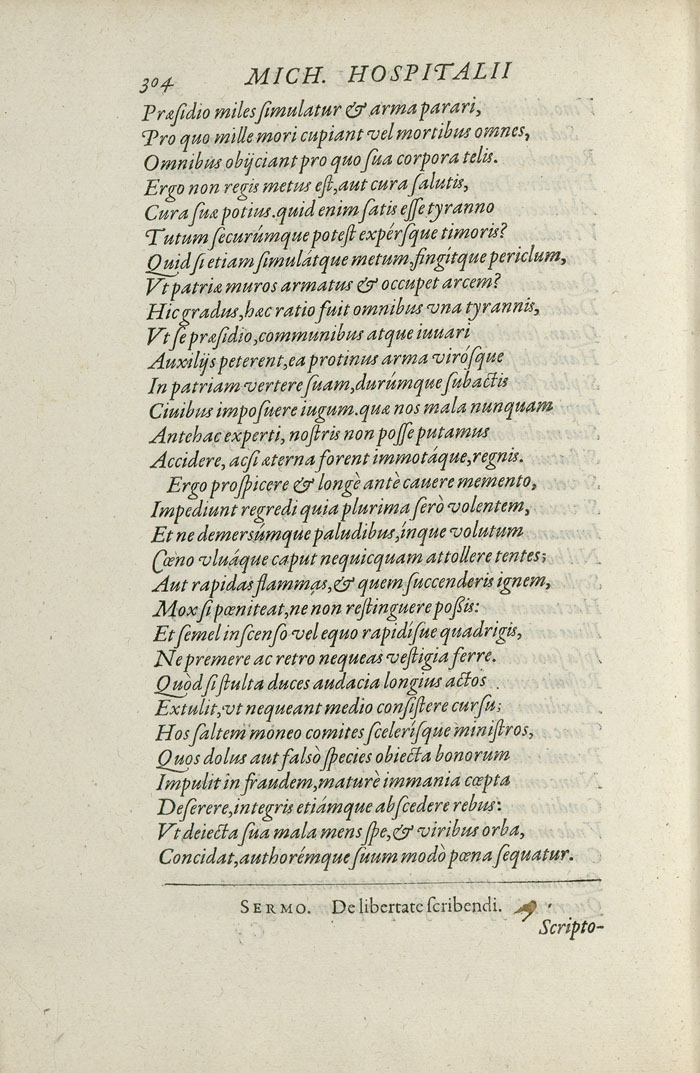 304 MICH. HOSPITALII
Præsidio miles simulatur & arma parari,
Pro quo mille mori cupiant vel mortibus omnes,
Omnibus obijciant pro quo sua corpora telis.
Ergo non regis metus est, aut cura salutis,
Cura suæ potius. quid enim satis esse tyranno
Tutum securúmque potest expérsque timoris?
Quid si etiam simulátque metum, fingitque periclum,
Vt patriæ muros armatus & occupet arcem?
Hic gradus, hæc ratio fuit omnibus vna tyrannis,
Vt se præsidio, communibus atque iuuari
Auxilijs peterent, ea protinus arma virósque
In patriam vertere suam, durúmque subactis
Ciuibus imposuere iugum. quæ nos mala nunquam
Antehac experti, nostris non posse putamus
Accidere, acsi æterna forent immotáque, regnis.
Ergo prospicere & longè antè cauere memento,
Impediunt regredi quia plurima serò volentem,
Et ne demersúmque paludibus, ínque volutum
Cœno vluáque caput nequicquam attollere tentes;
Aut rapidas flammas, & quem succenderis ignem,
Mox si pœniteat, ne non restinguere poßis:
Et semel inscenso vel equo rapidísue quadrigis,
Ne premere ac retro nequeas vestigia ferre.
Quòd si stulta duces audacia longius actos
Extulit, vt nequeant medio consistere cursu;
Hos saltem moneo comites scelerísque ministros,
Quos dolus aut falsò species obiecta bonorum
Impulit in fraudem, maturè immania cœpta
Deserere, integris etiámque abscedere rebus:
Vt deiecta sua mala mens spe, & viribus orba,
Concidat, authorémque suum modò pœna sequatur.
SERMO. De libertate scribendi.
Scripto-